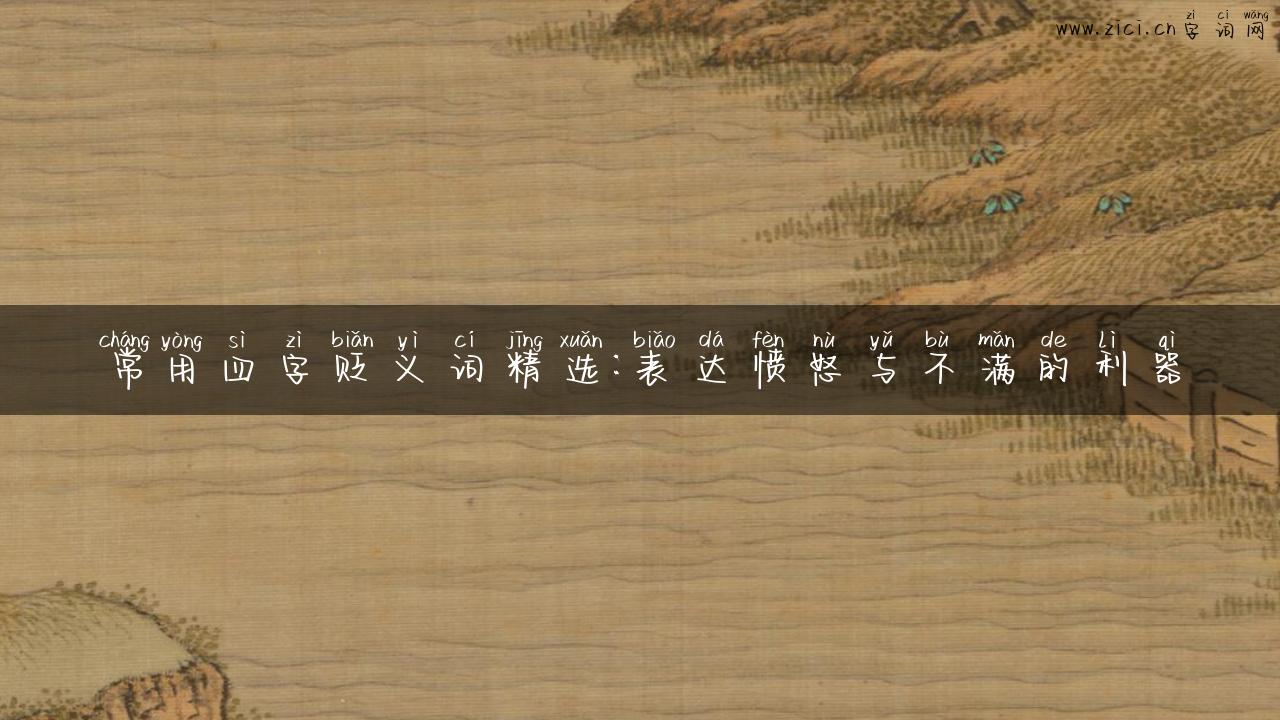 zì cí wǎng
www.zici.cn字词网
cháng yòng sì zì biǎn yì cí jīng xuǎn biǎo dá fèn nù yǔ bù mǎn de lì qì
常用四字贬义词精选:表达愤怒与不满的利器